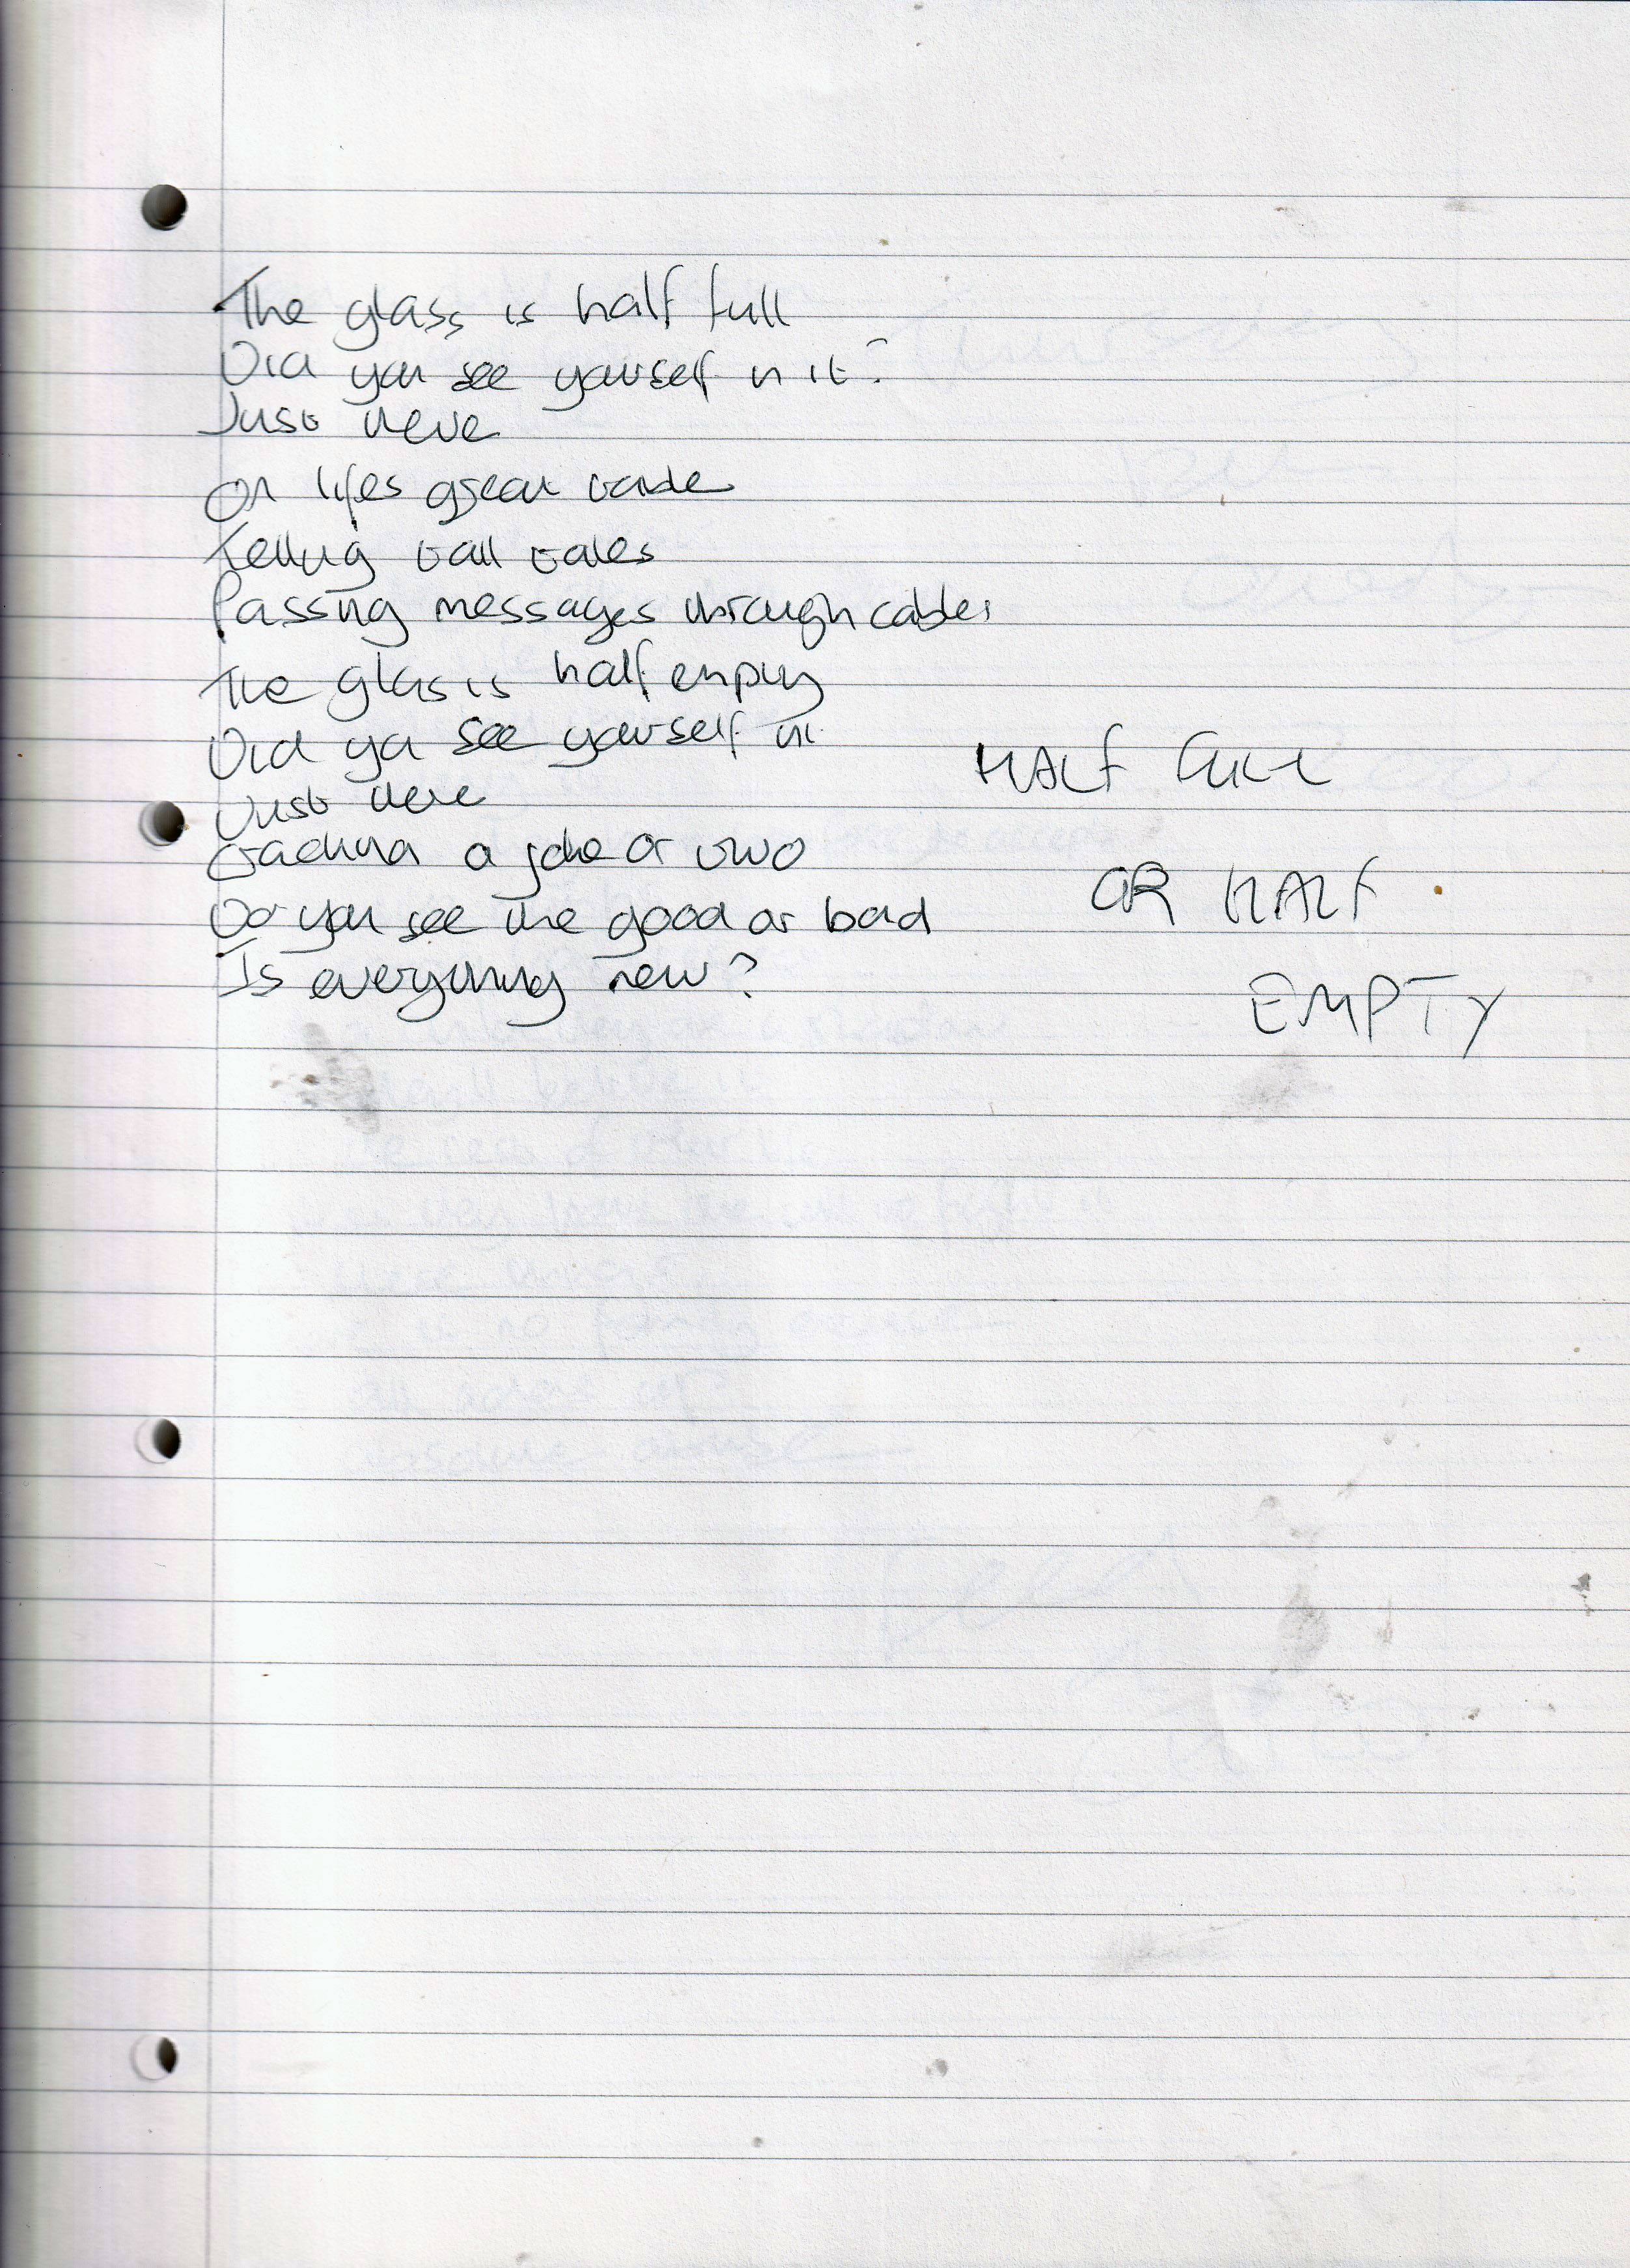 The glass is half full
Did you see yourself in it?
Just there
On lifes great table
Telling tall tales
Passing messages through cables
The glass is half empty
Did ya see yourself in it
Just there
Cracking a joke or two
Do you see the good or bad
Is everything new?
HALF FULL
OR HALF
EMPTY